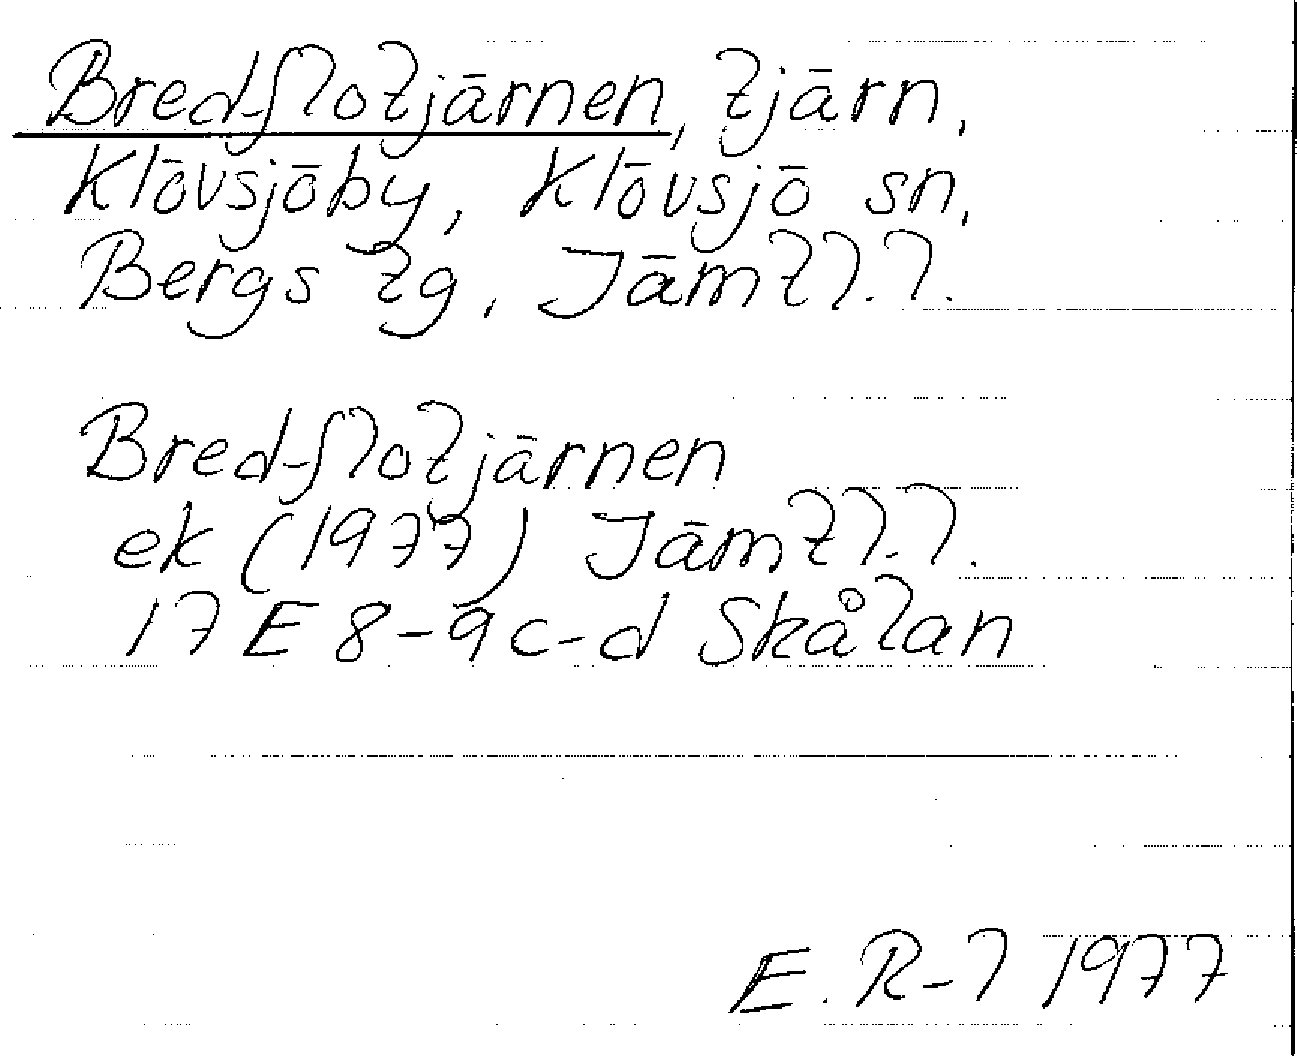 Bred-flotjärnen, tjärn,
Klövsjöby, Klövsjö sn,
Bergs tg, Jämtl. l.
Bred-flotjärnen
ek (1977) Jämtl. l.
17 E 8-9 c-d Skålan
E. R-l 1977